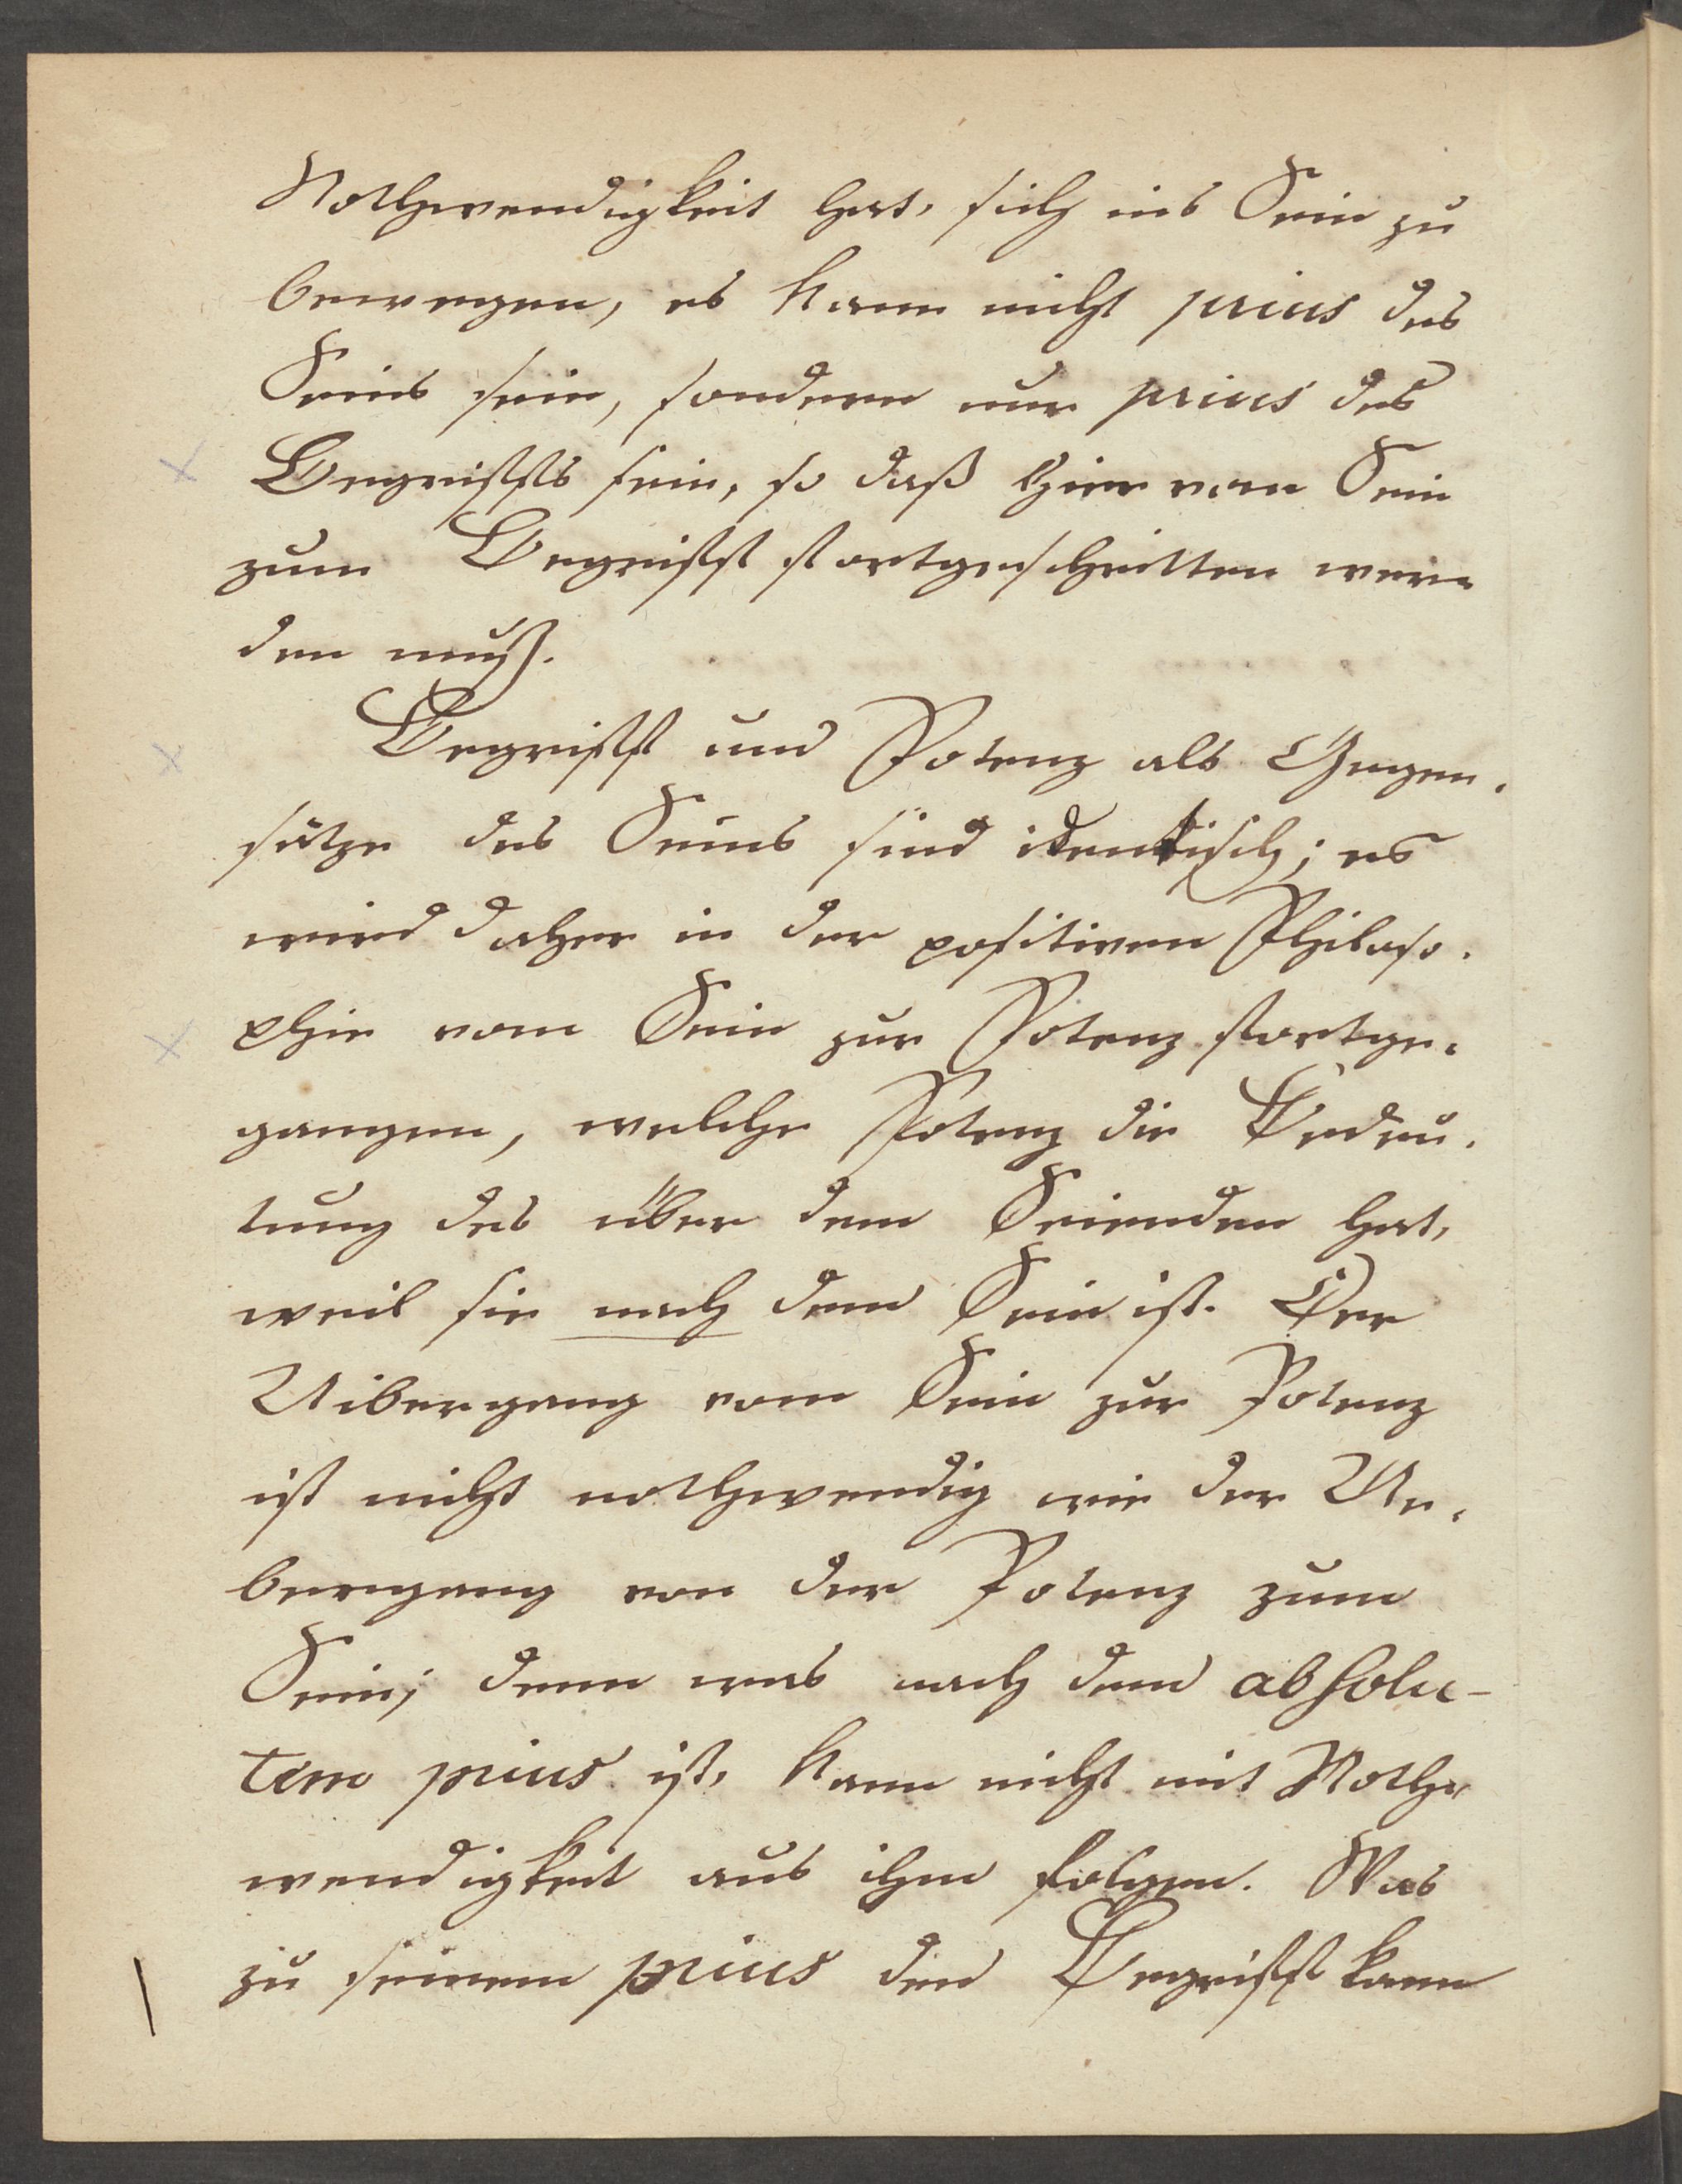 Nothwendigkeit hat, sich ins Sein zu
bewegen, es kann nicht prius des
Seins sein, sondern nur prius des
Begriffs sein, so daß hier vom Sein
zum Begriff fortgeschritten wer-
den muß.
Begriff und Potenz als Gegen-
sätze des Seins sind identisch; es
wird daher in der positiven Philoso-
phie vom Sein zur Potenz fortge-
gangen, welche Potenz die Bedeu-
tung des über dem Seienden hat,
weil sie nach dem Sein ist. Der
Uibergang vom Sein zur Potenz
ist nicht nothwendig wie der Ue-
bergang von der Potenz zum
Sein; denn was nach dem absolu-
tum prius ist, kann nicht mit Noth-
wendigkeit aus ihm folgen. Was
zu seinem prius den Begriff kann